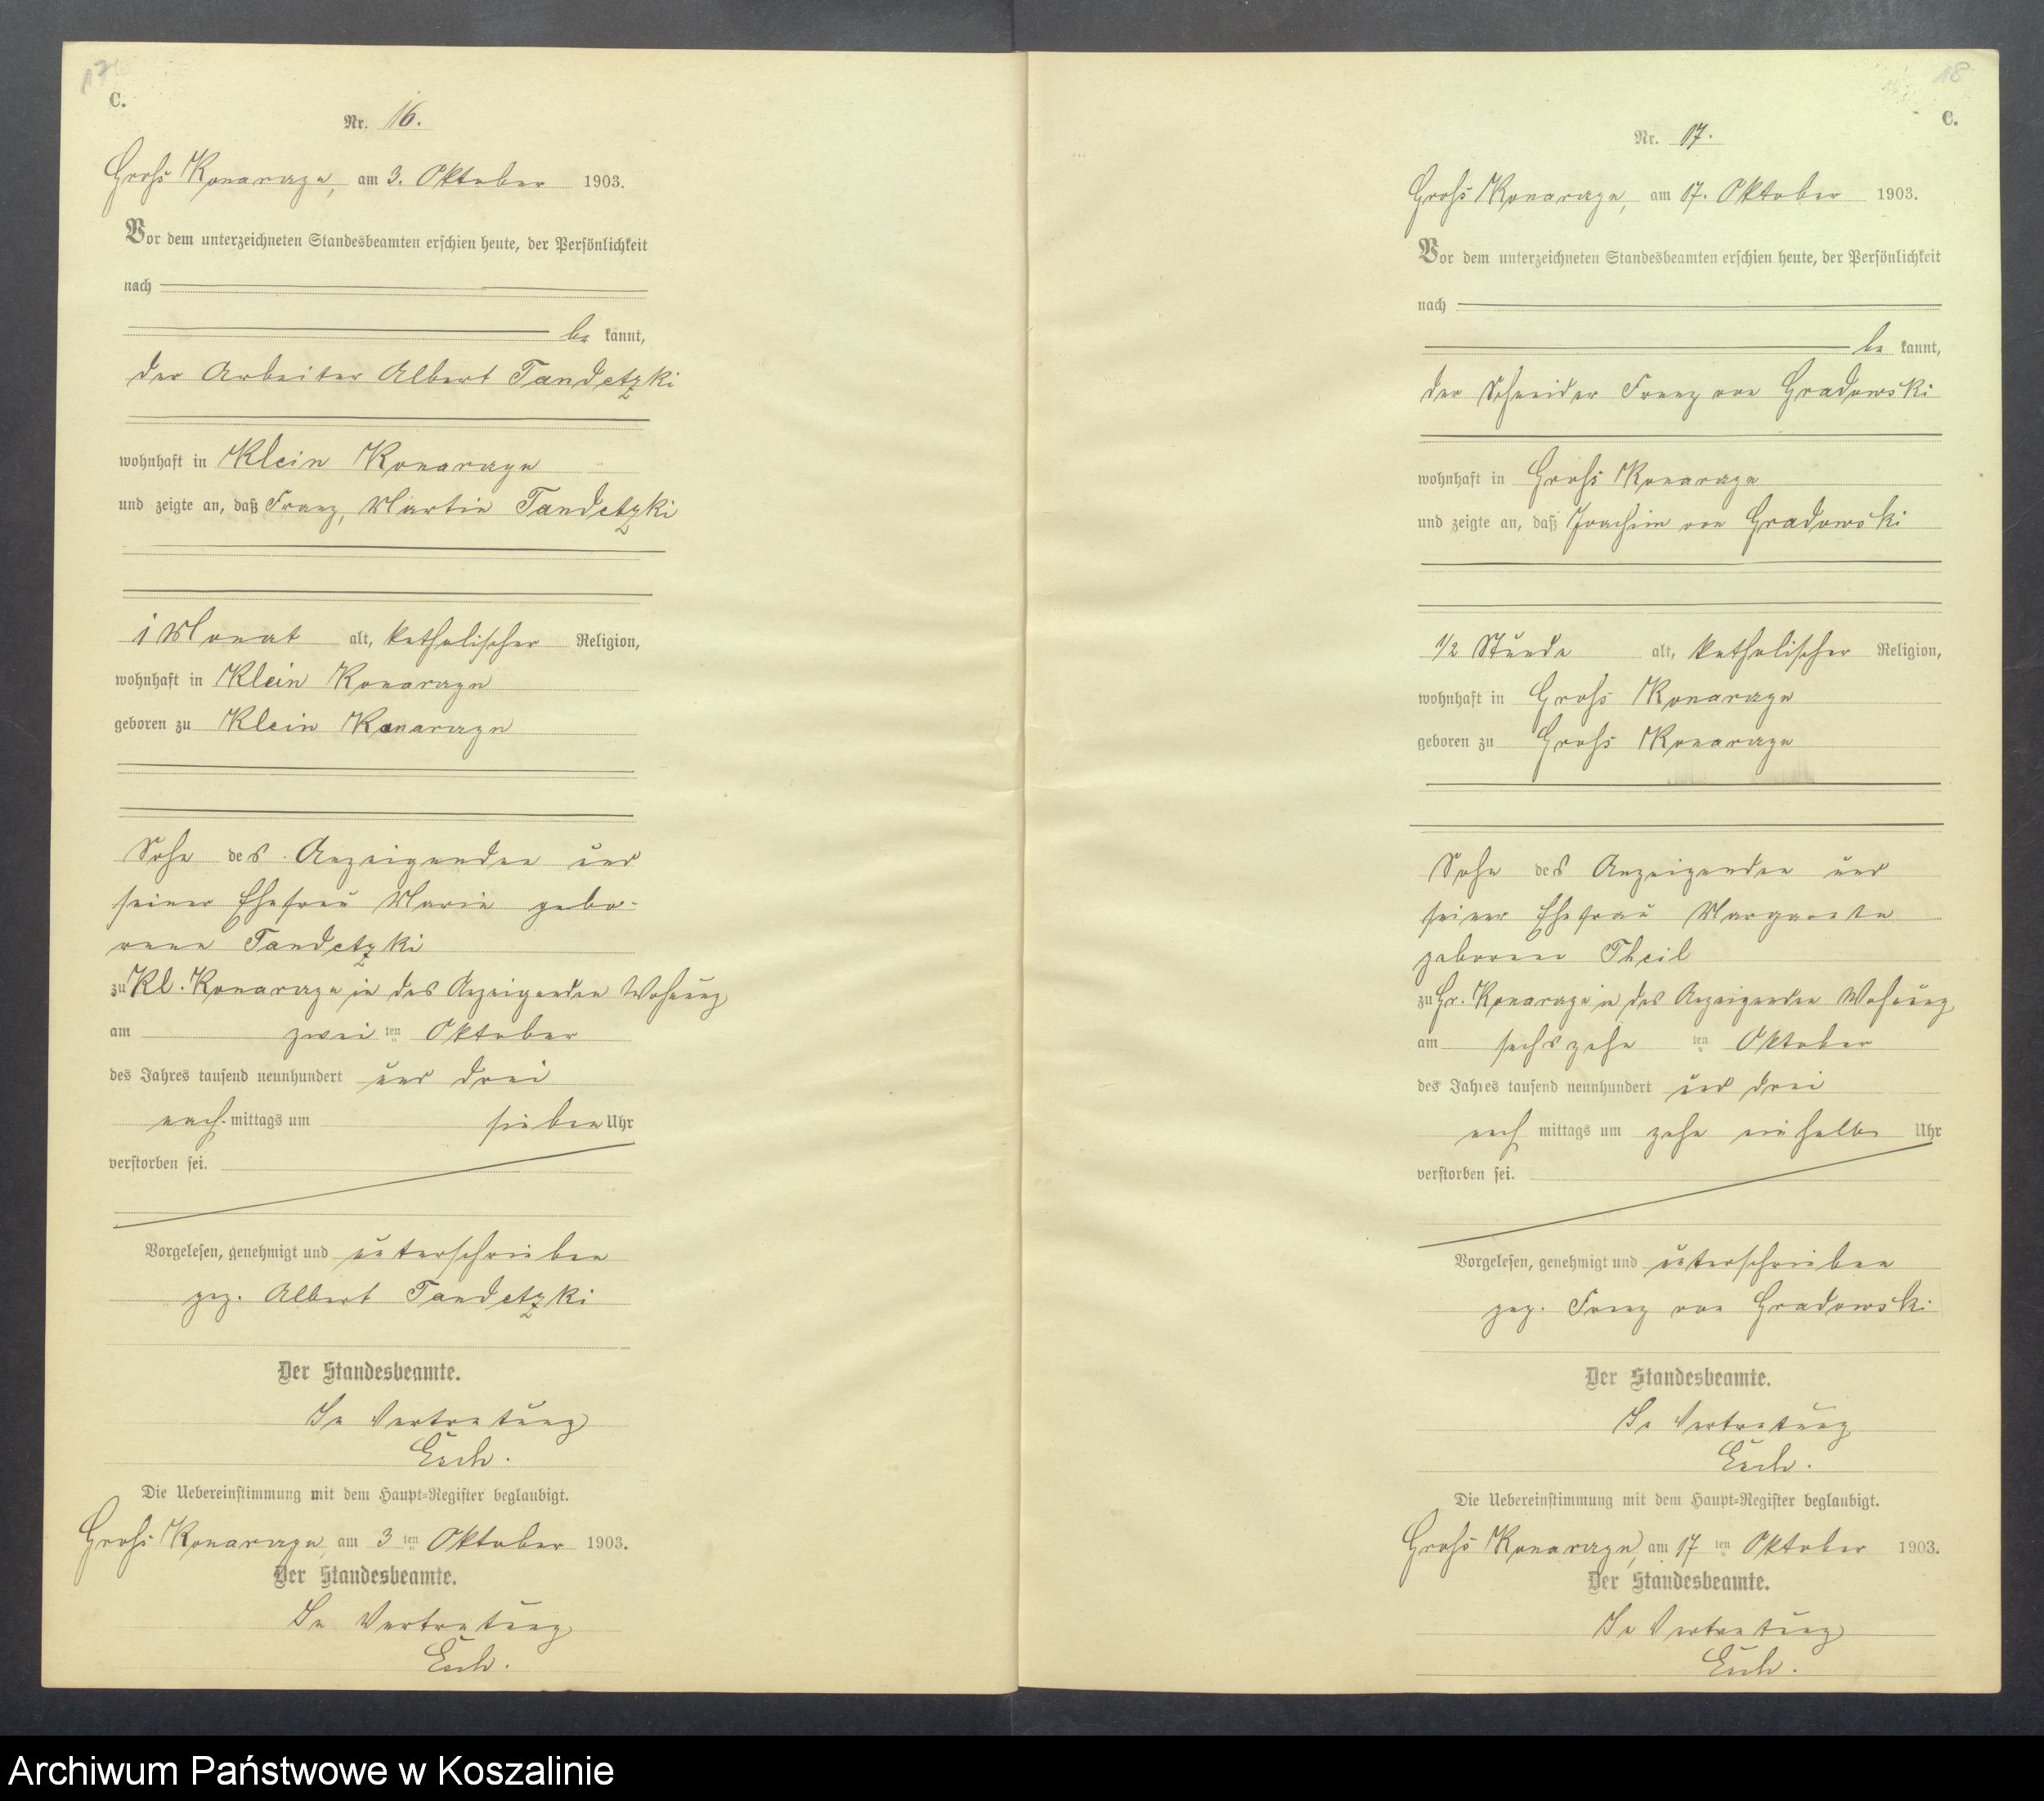 17
C.
Nr. 16.
Groß Konarczyn, am 3. Oktober 1903.
Vor dem unterzeichneten Standesbeamten erschien heute, der Persönlichkeit
nach
be kannt,
der Arbeiter Albert Tandetzki
wohnhaft in Klein Konarczyn
und zeigte an, daß Franz, Martin Tandetzki
1 Monat alt, katholischer Religion,
wohnhaft in Klein Konarczyn
geboren zu Klein Konarczyn
Sohn des Anzeigenden und
seiner Ehefrau Marie gebo-
rene Tandetzki
zu Kl. Konarczyn in des Anzeigenden Wohnung
am zwei ten Oktober
des Jahres tausend neunhundert und drei
nach mittags um sieben Uhr
verstorben sei.
Vorgelesen, genehmigt und unterschrieben
gez. Albert Tandetzki
Der Standesbeamte.
In Vertretung
Esch.
Die Uebereinstimmung mit dem Haupt-Register beglaubigt.
Groß Konarczyn, am 3 ten Oktober 1903.
Der Standesbeamte.
In Vertretung
Esch.
18
C.
Nr. 17.
Groß Konarczyn, am 17. Oktober 1903.
Vor dem unterzeichneten Standesbeamten erschien heute, der Persönlichkeit
nach
be kannt,
der Schneider Franz von Gradowski
wohnhaft in Groß Konarczyn
und zeigte an, daß Joachim von Gradowski
1/2 Stunde alt, katholischer Religion,
wohnhaft in Groß Konarczyn
geboren zu Groß Konarczyn
Sohn des Anzeigenden und
seiner Ehefrau Margarete
geborene Theil
zu Gr. Konarczyn in des Anzeigenden Wohnung
am sechszehn ten Oktober
des Jahres tausend neunhundert und drei
nach mittags um zehn einhalb Uhr
verstorben sei.
Vorgelesen, genehmigt und unterschrieben
gez. Franz von Gradowski
Der Standesbeamte.
In Vertretung
Esch.
Die Uebereinstimmung mit dem Haupt-Register beglaubigt.
Groß Konarczyn, am 17 ten Oktober 1903.
Der Standesbeamte.
In Vertretung
Esch.
Archiwum Państwowe w Koszalinie